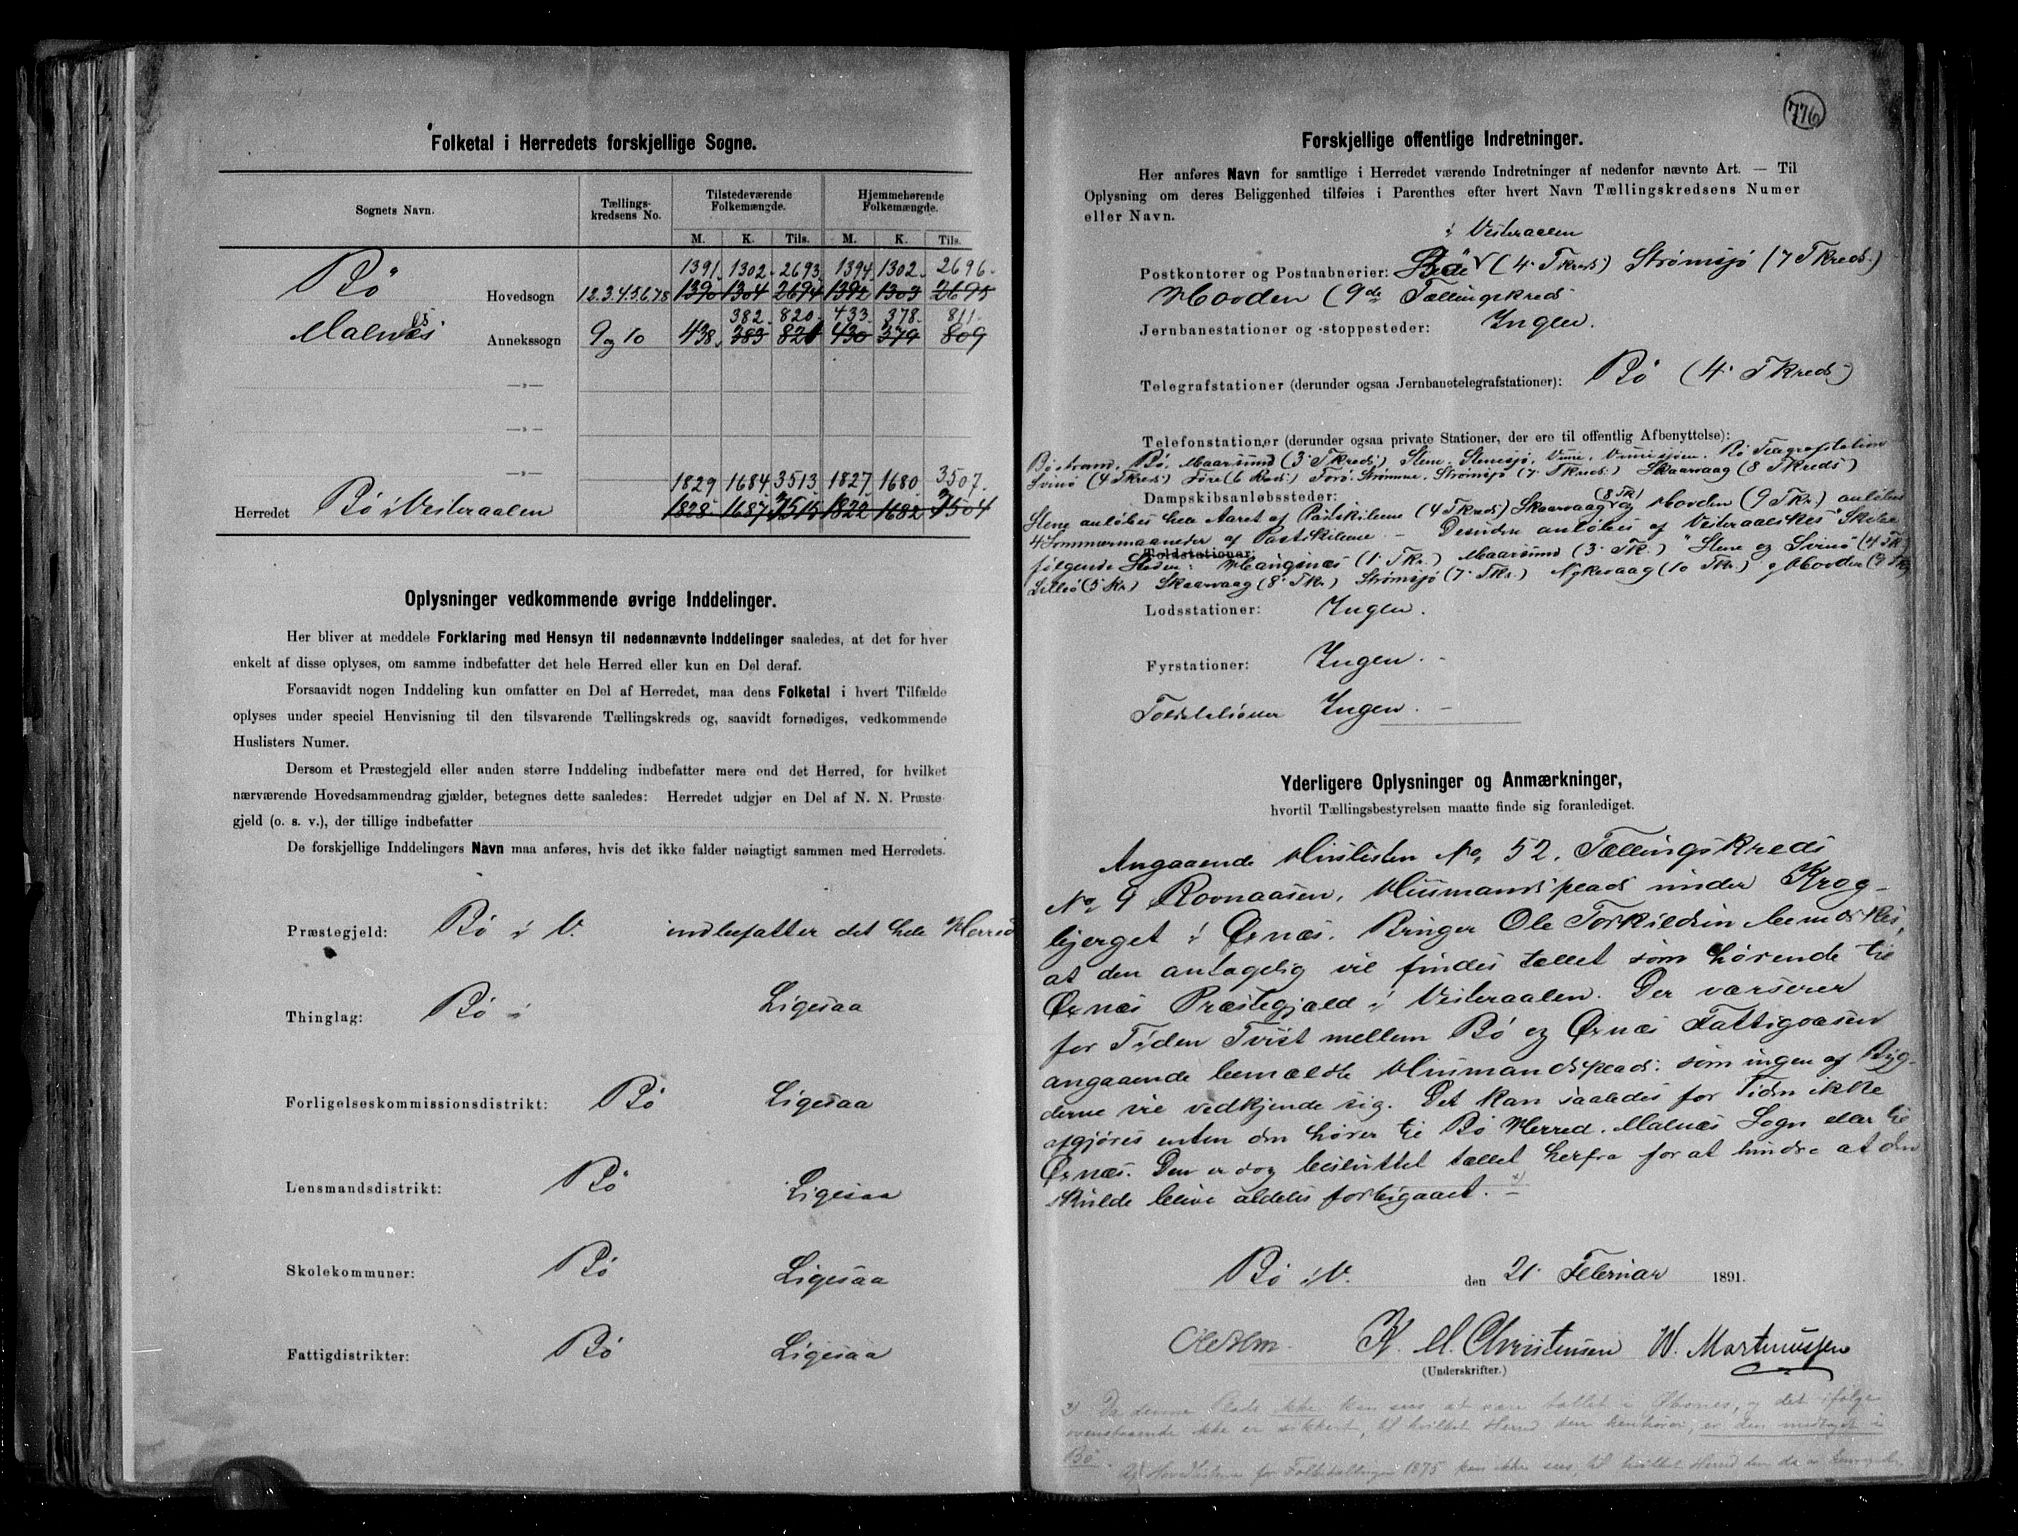 Folketal i Herredets forskjellige Sogne.
Sognets Navn. Tællings-kredsens No. Tilstedeværende Folkemængde. Hjemmehørende Folkemængde.
M. K. Tils. M. K. Tils.
1391. 1302. 2693. 1394. 1302. 2696.
Bö Hovedsogn 1.2.3.4.5.6.7.8 1390 1304 2694 1392 1303 2695
382. 820. 433. 378. 811.
Malnes Annekssogn 9 og 10 438. 383 821 430 379 809
—»—
—»—
—»—
1829 1684 3513 1827 1680 3507.
Herredet Bö i Vesteraalen 1828. 1687. 3515 1822 1682 3504
Oplysninger vedkommende øvrige Inddelinger.
Her bliver at meddele Forklaring med Hensyn til nedennævnte Inddelinger saaledes, at det for hver
enkelt af disse oplyses, om samme indbefatter det hele Herred eller kun en Del deraf.
Forsaavidt nogen Inddeling kun omfatter en Del af Herredet, maa dens Folketal i hvert Tilfælde
oplyses under speciel Henvisning til den tilsvarende Tællingskreds og, saavidt fornødiges, vedkommende
Huslisters Numer.
Dersom et Præstegjeld eller anden større Inddeling indbefatter mere end det Herred, for hvilket
nærværende Hovedsammendrag gjælder, betegnes dette saaledes: Herredet udgjør en Del af N. N. Præste-
gjeld (o. s. v.), der tillige indbefatter
De forskjellige Inddelingers Navn maa anføres, hvis det ikke falder nøiagtigt sammen med Herredets.
Præstegjeld: Bö i V. indbefatter det hele Herred
Thinglag: Bö i Ligesaa
Forligelseskommissionsdistrikt: Bö Ligesaa
Lensmandsdistrikt: Bö Ligesaa
Skolekommuner: Bö Ligesaa
Fattigdistrikter: Bö Ligesaa
776
Forskjellige offentlige Indretninger.
Her anføres Navn for samtlige i Herredet værende Indretninger af nedenfor nævnte Art. — Til
Oplysning om deres Beliggenhed tilføies i Parenthes efter hvert Navn Tællingskredsens Numer
eller Navn.
i Vesteraalen
Postkontorer og Postaabnerier: Bö (4. Tkreds) Strömsjö (7 Tkreds.)
Hovden (9de Tællingskreds
Jernbanestationer og -stoppesteder: Ingen.
Telegrafstationer (derunder ogsaa Jernbanetelegrafstationer): Bö (4. Tkreds)
Telefonstationer (derunder ogsaa private Stationer, der ere til offentlig Afbenyttelse):
Böstrand. Bö. Maarsund (3. Tkreds) Stene. Stenesjö. Vinje. Vinjesjöen. Bö
Svinö (4 Tkreds) Före (6 Kreds) Strömsjö (7. Tkreds.) Skaarvaag (8 Tkreds)
Dampskibsanløbssteder: (8 Tk)
Stene anlöbes hele Aaret af Postskibene (4 Tkreds) Skaarvaag og Hovden (9 Tkr.) anlöbes
4 Sommermaaneder af Postskibene. — Desuden anlöbes af Vesteraalskes Skibe
Toldstationer:
følgende Steder: (1. Tkr.) Maarsund (3. Tkr.) Stene og Svinö (4 Tkr)
(5 Kr) Skaarvaag (8. Tkr) Strömsjö (7. Tkr) Nykvaag (10 Tkr.) og Hovden (9 Tkr)
Lodsstationer: Ingen.
Fyrstationer: Ingen. -
Toldstationer Ingen. -
Yderligere Oplysninger og Anmærkninger,
hvortil Tællingsbestyrelsen maatte finde sig foranlediget.
Angaaende Huslisten No 52. Tællingskreds
No 9 Husmandsplads under Krog-
bjerget i Øxnæs. Bruger Ole Torkildsen bemærkes,
at den antagelig vil findes tællet som hørende til
Øxnæs Præstegjæld i Vesteraalen. Der værserer
for Tiden Tvist mellem Bö og Øxnæs Fattigvæsen
angaaende bemældte Husmandsplads: som ingen af Byg-
derne vil vedkjende sig. Det kan saaledes for Tiden ikke
afgjøres enten den hører til Bö Herred. Malnæs Sogn eller til
Øxnæs. Den er dog besluttet tællet herfra for at hindre at den
skulde blive aldeles forbigaaet. —
Bö i V. den 21. Februar 1891.
Christensen W. Martinussen
(Underskrifter.)
Da denne Plads ikke kan sees at være tællet i Øxnes, og det ifølge
ovenstaaende ikke er sikkert, til hvilket Herred den henhører, er den medtaget i
Bö.
for Folketællingen 1875 kan ikke sees, til hvilket Herred den da